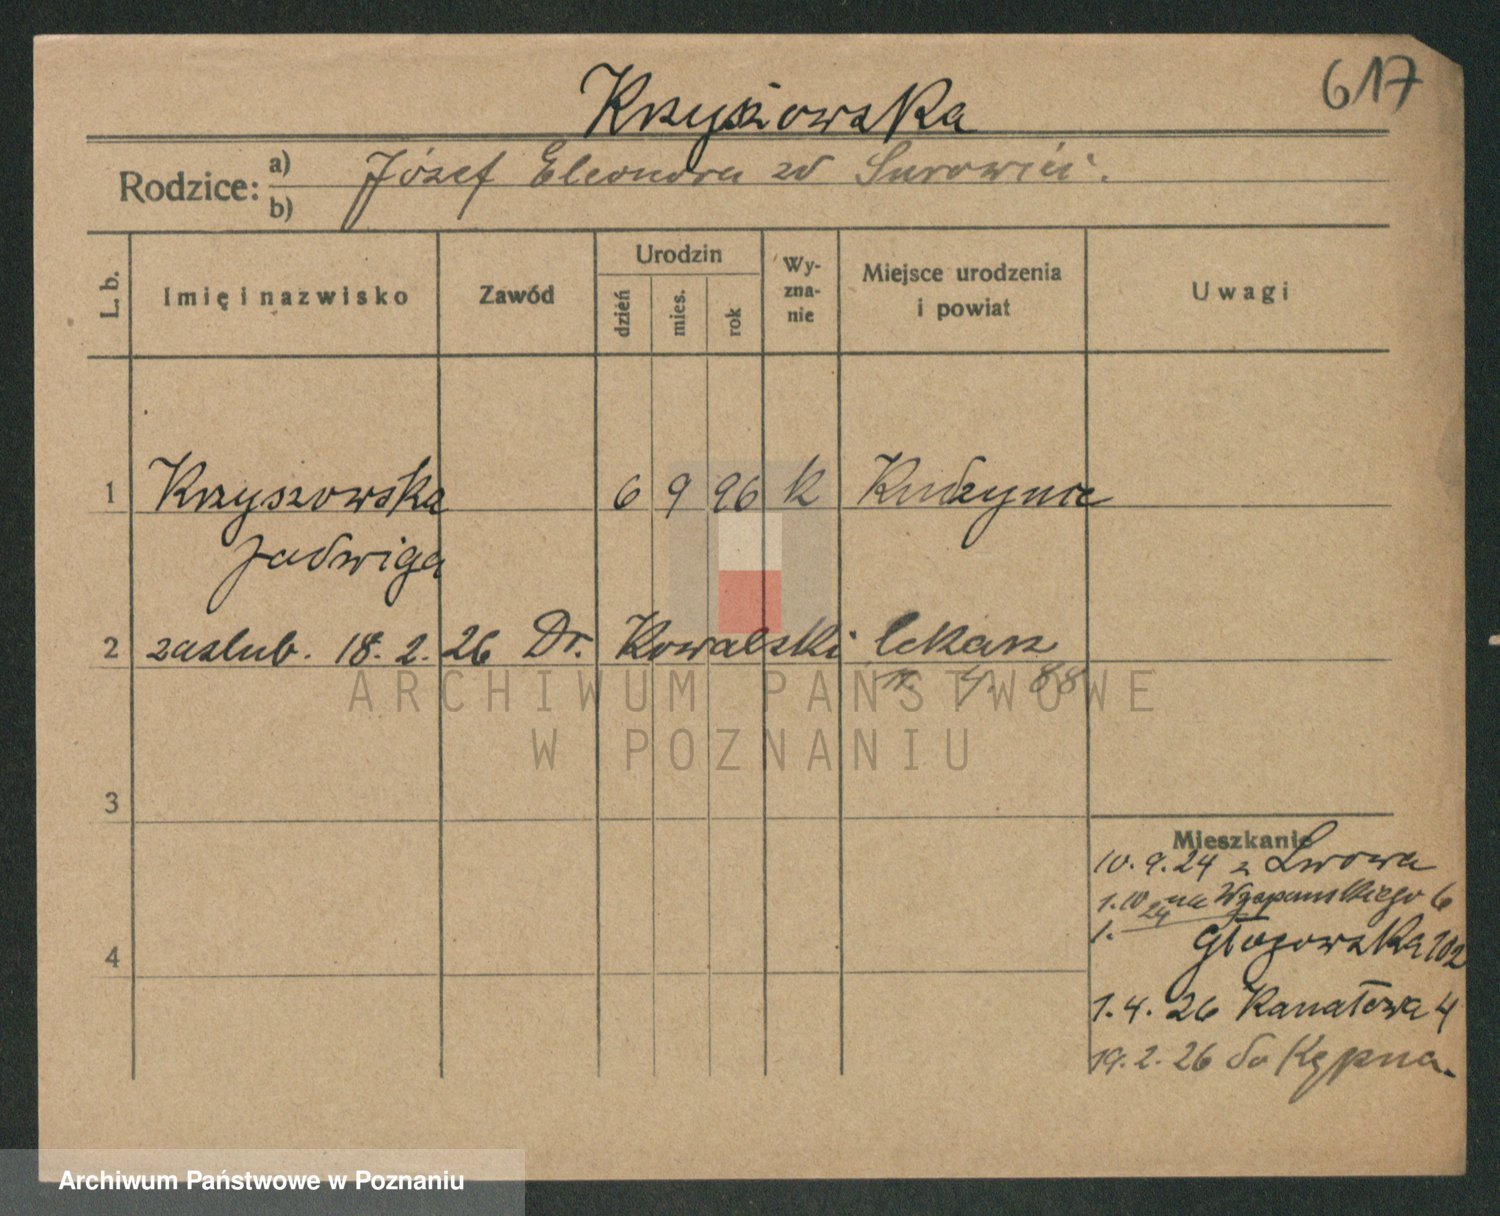 617
Krzyszowska
Rodzice: a) b) Józef Eleonora zd Surowiči.
L. b. Imię i nazwisko Zawód Urodzin dzień mies. rok Wyznanie Miejsce urodzenia i powiat Uwagi
1 Krzyszowska 6 9 96 k Kudzynce
Jadwiga
2 zaslub. 18. 2. 26 Dr. Kowalski lekarz
11. 4. 88
ARCHIWUM PAŃSTWOWE
W POZNANIU
3
Mieszkanie
10. 9. 24 z Lwowa
1. 10 24 na Wyspianskiego 6
1. Głogowska 102
4
1. 4. 26 Kanałowa 4
19. 2. 26 do Kępna.
Archiwum Państwowe w Poznaniu